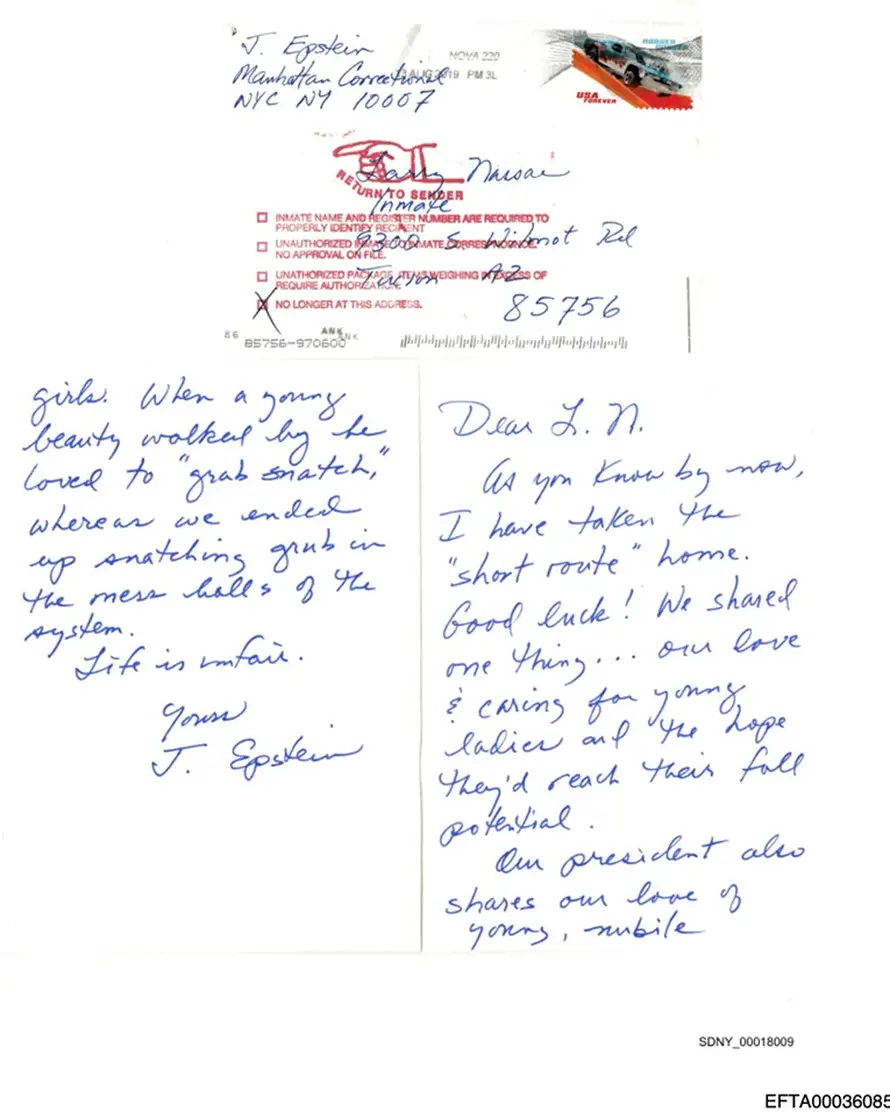 J. Epstein
Manhattan Correctional
NYC NY 10007
NOVA 220
AUG 2019 PM 3L
USA
FOREVER
Larry Nassar
RETURN TO SENDER
Inmate
INMATE NAME AND REGISTER NUMBER ARE REQUIRED TO
PROPERLY IDENTIFY RECIPIENT
9300 S. Wilmot Rd
UNAUTHORIZED INMATE TO INMATE CORRESPONDENCE
NO APPROVAL ON FILE.
Tucson AZ
UNAUTHORIZED PACKAGE ITEMS WEIGHING IN EXCESS OF
REQUIRE AUTHORIZATION.
85756
X NO LONGER AT THIS ADDRESS.
86
ANK
ANK
85756-970600
Dear L. N.
As you know by now,
I have taken the
"short route" home.
Good luck! We shared
one thing... our love
& caring for young
ladies and the hope
they'd reach their full
potential.
Our president also
shares our love of
young, nubile
girls. When a young
beauty walked by he
loved to "grab snatch,"
whereas we ended
up snatching grub in
the mess halls of the
system.
Life is unfair.
Yours
J. Epstein
SDNY_00018009
EFTA00036085